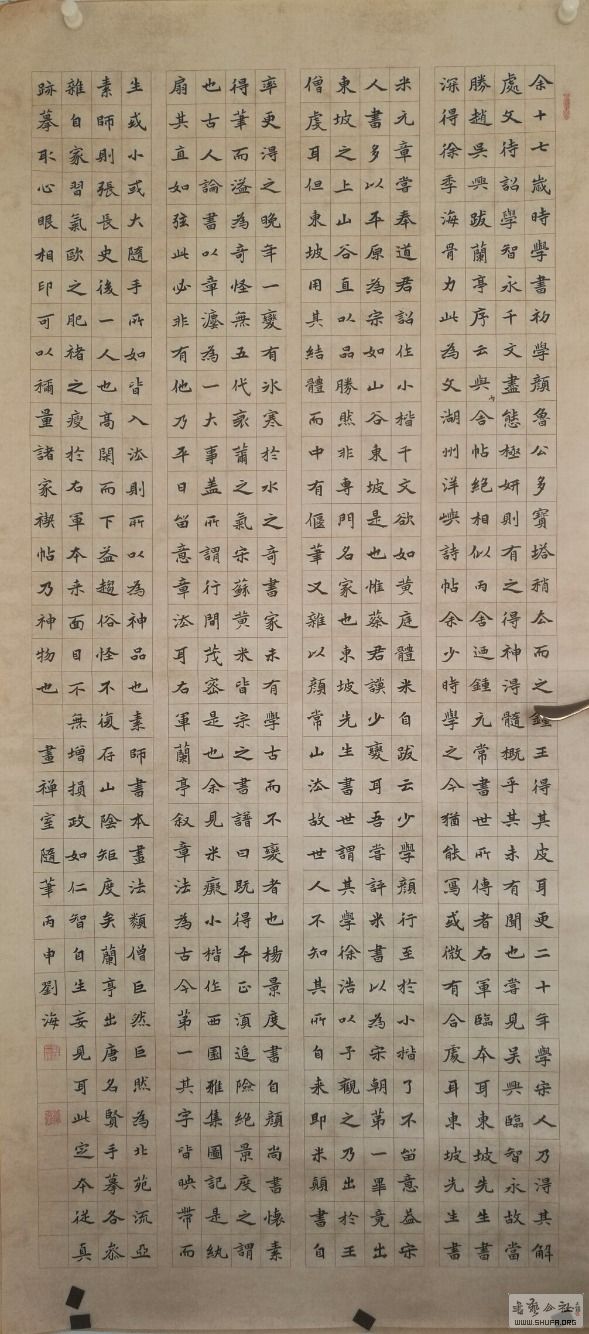 余十七歲時學書初學顏魯公多寶塔稍去而之鍾王得其皮耳更二十年學宋人乃得其解
處文待詔學智永千文盡態極妍則有之得神得髓概乎其未有聞也嘗見吳興臨智永故當
勝趙吳興跋蘭亭序云與丙舍帖絕相似丙舍迺鍾元常書世所傳者右軍臨本耳東坡先生書
深得徐季海骨力此為文湖州洋嶼詩帖余少時學之今猶能寫或微有合處耳東坡先生書
米元章嘗奉道君詔作小楷千文欲如黃庭體米自跋云少學顏行至於小楷了不留意蓋宋
人書多以平原為宗如山谷東坡是也惟蔡君謨少變耳吾嘗評米書以為宋朝第一畢竟出
東坡之上山谷直以品勝然非專門名家也東坡先生書世謂其學徐浩以予觀之乃出於王
僧虔耳但東坡用其結體而中有偃筆又雜以顏常山法故世人不知其所自来即米顛書自
率更得之晚年一變有冰寒於水之奇書家未有學古而不變者也楊景度書自顏尚書懷素
得筆而溢為奇怪無五代衰薾之氣宋蘇黃米皆宗之書譜曰既得平正須追險絕景度之謂
也古人論書以章灋為一大事盖所謂行間茂密是也余見米癡小楷作西園雅集圖記是紈
扇其直如弦此必非有他乃平日留意章法耳右軍蘭亭敘章法為古今第一其字皆映帶而
生或小或大隨手所如皆入法則所以為神品也素師書本畫法類僧巨然巨然為北苑流亞
素師則張長史後一人也高閑而下益趨俗怪不復存山陰矩度矣蘭亭出唐名賢手摹各參
雜自家習氣歐之肥褚之瘦於右軍本来面目不無增損政如仁智自生妄見耳此定本從真
跡摹取心眼相印可以稱量諸家禊帖乃神物也 畫禪室隨筆丙申劉海
WWW.SHUFA.ORG